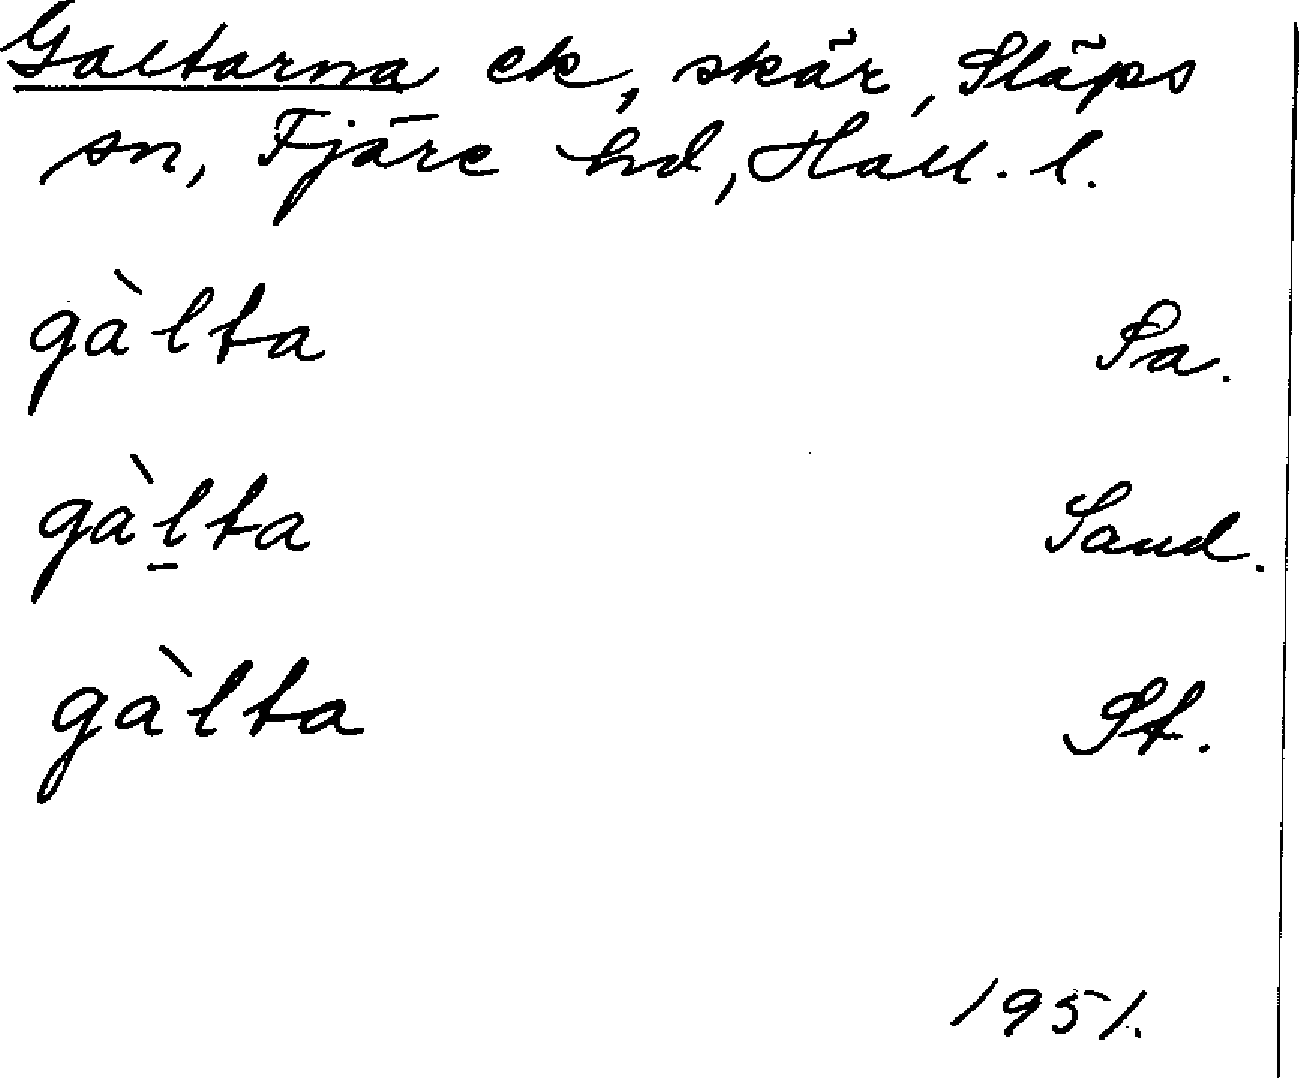 Galtarna ek, skär, Släps
sn, Fjäre hd, Hall. l.
gàlta Sa.
gàl̲ta Sand.
gàlta St.
1951.